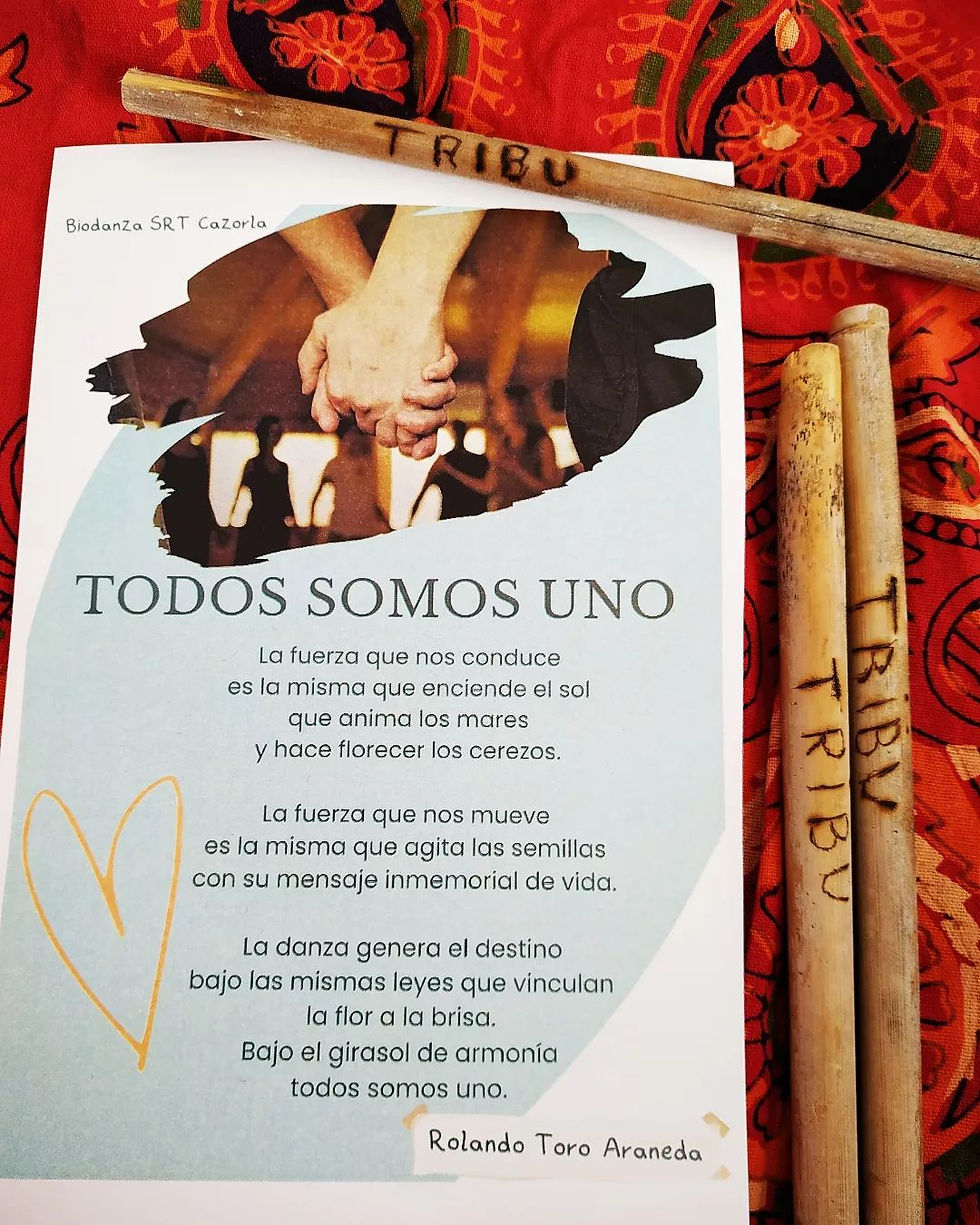 TRIBU
Biodanza SRT Cazorla
TODOS SOMOS UNO
La fuerza que nos conduce
es la misma que enciende el sol
que anima los mares
y hace florecer los cerezos.
La fuerza que nos mueve
es la misma que agita las semillas
con su mensaje inmemorial de vida.
La danza genera el destino
bajo las mismas leyes que vinculan
la flor a la brisa.
Bajo el girasol de armonía
todos somos uno.
Rolando Toro Araneda
TRIBU
TRIBU